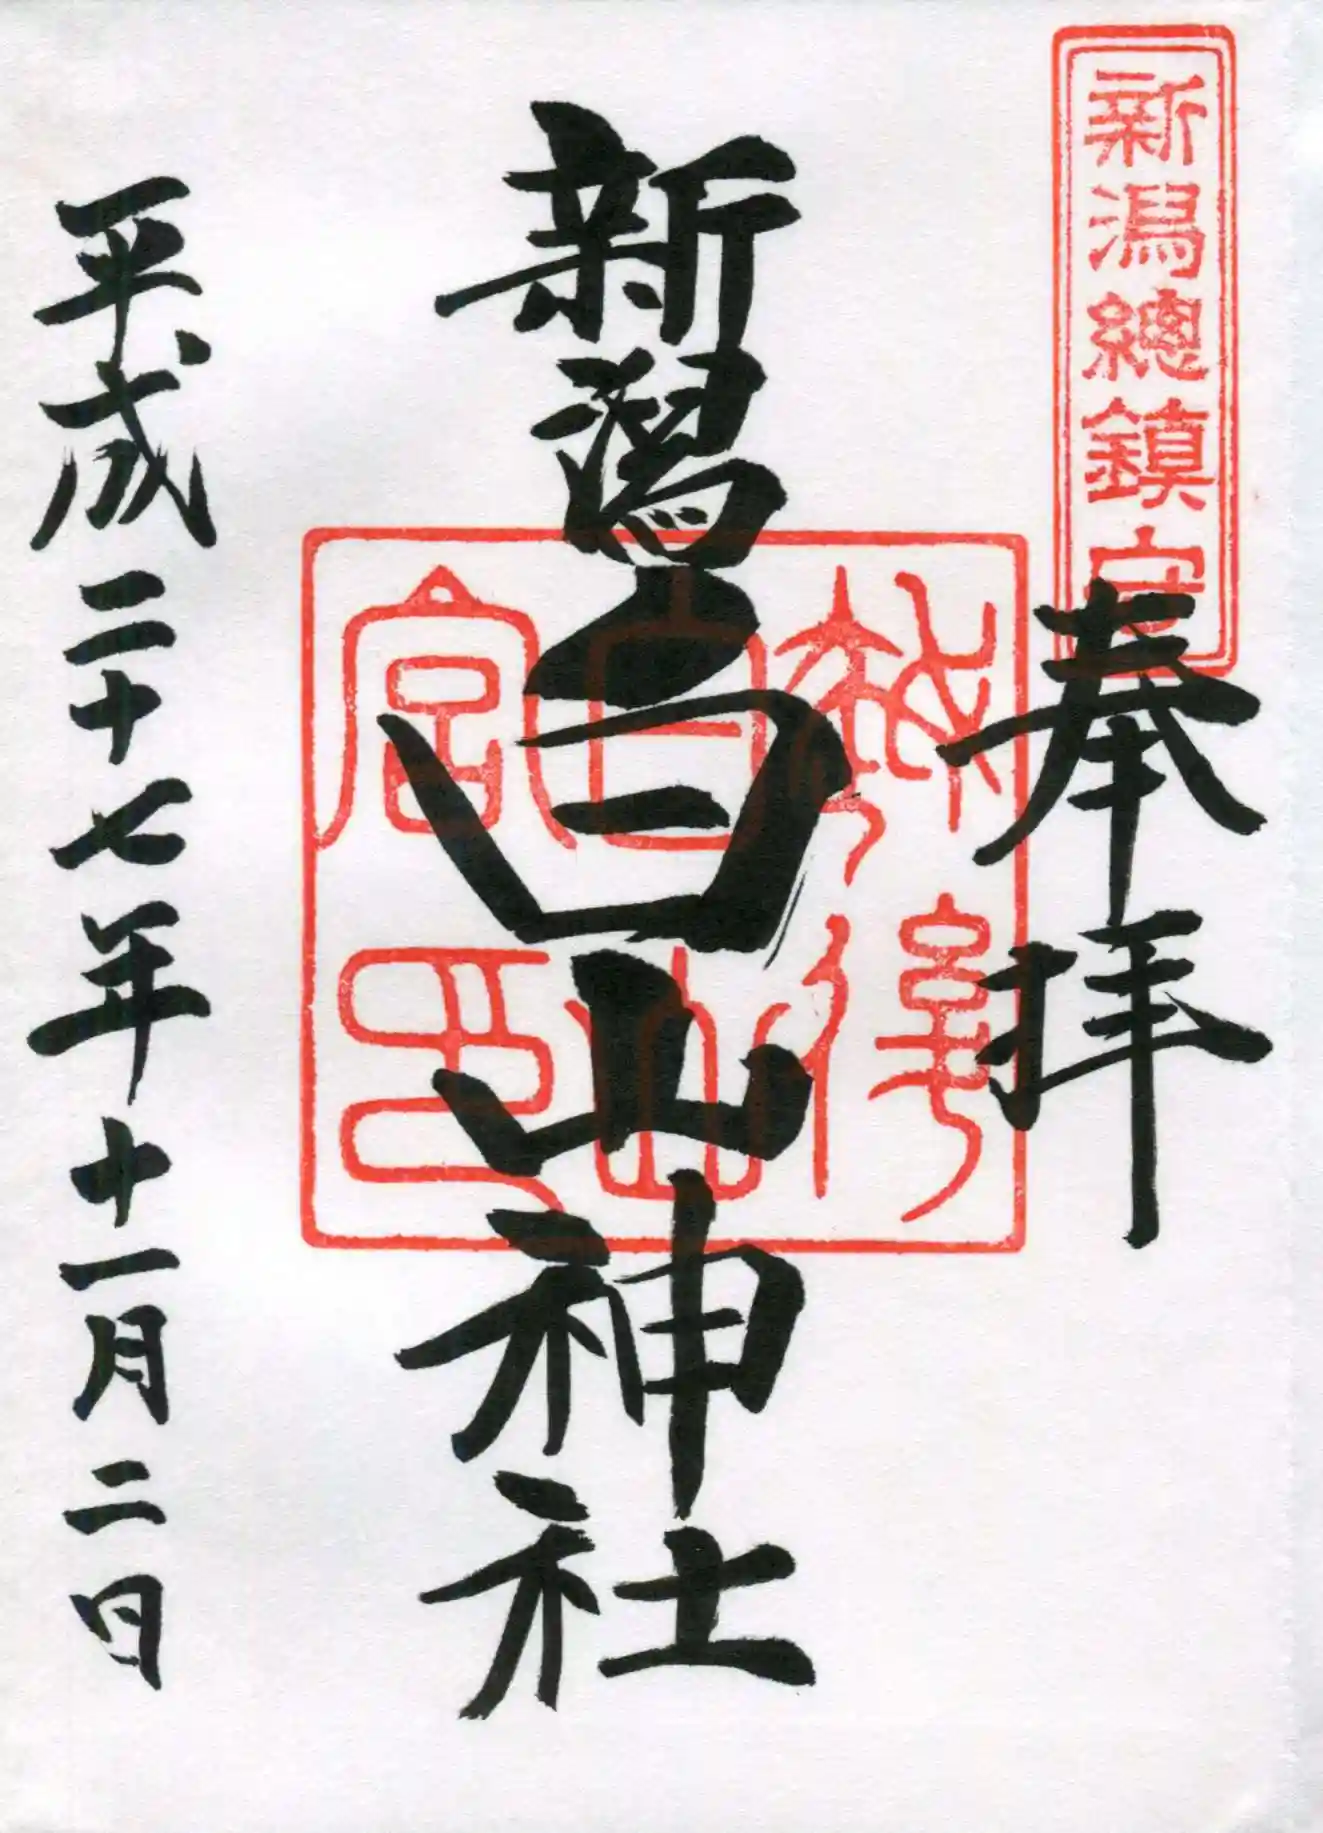 新潟總鎮守
奉拝
新潟白山神社
平成二十七年十一月二日